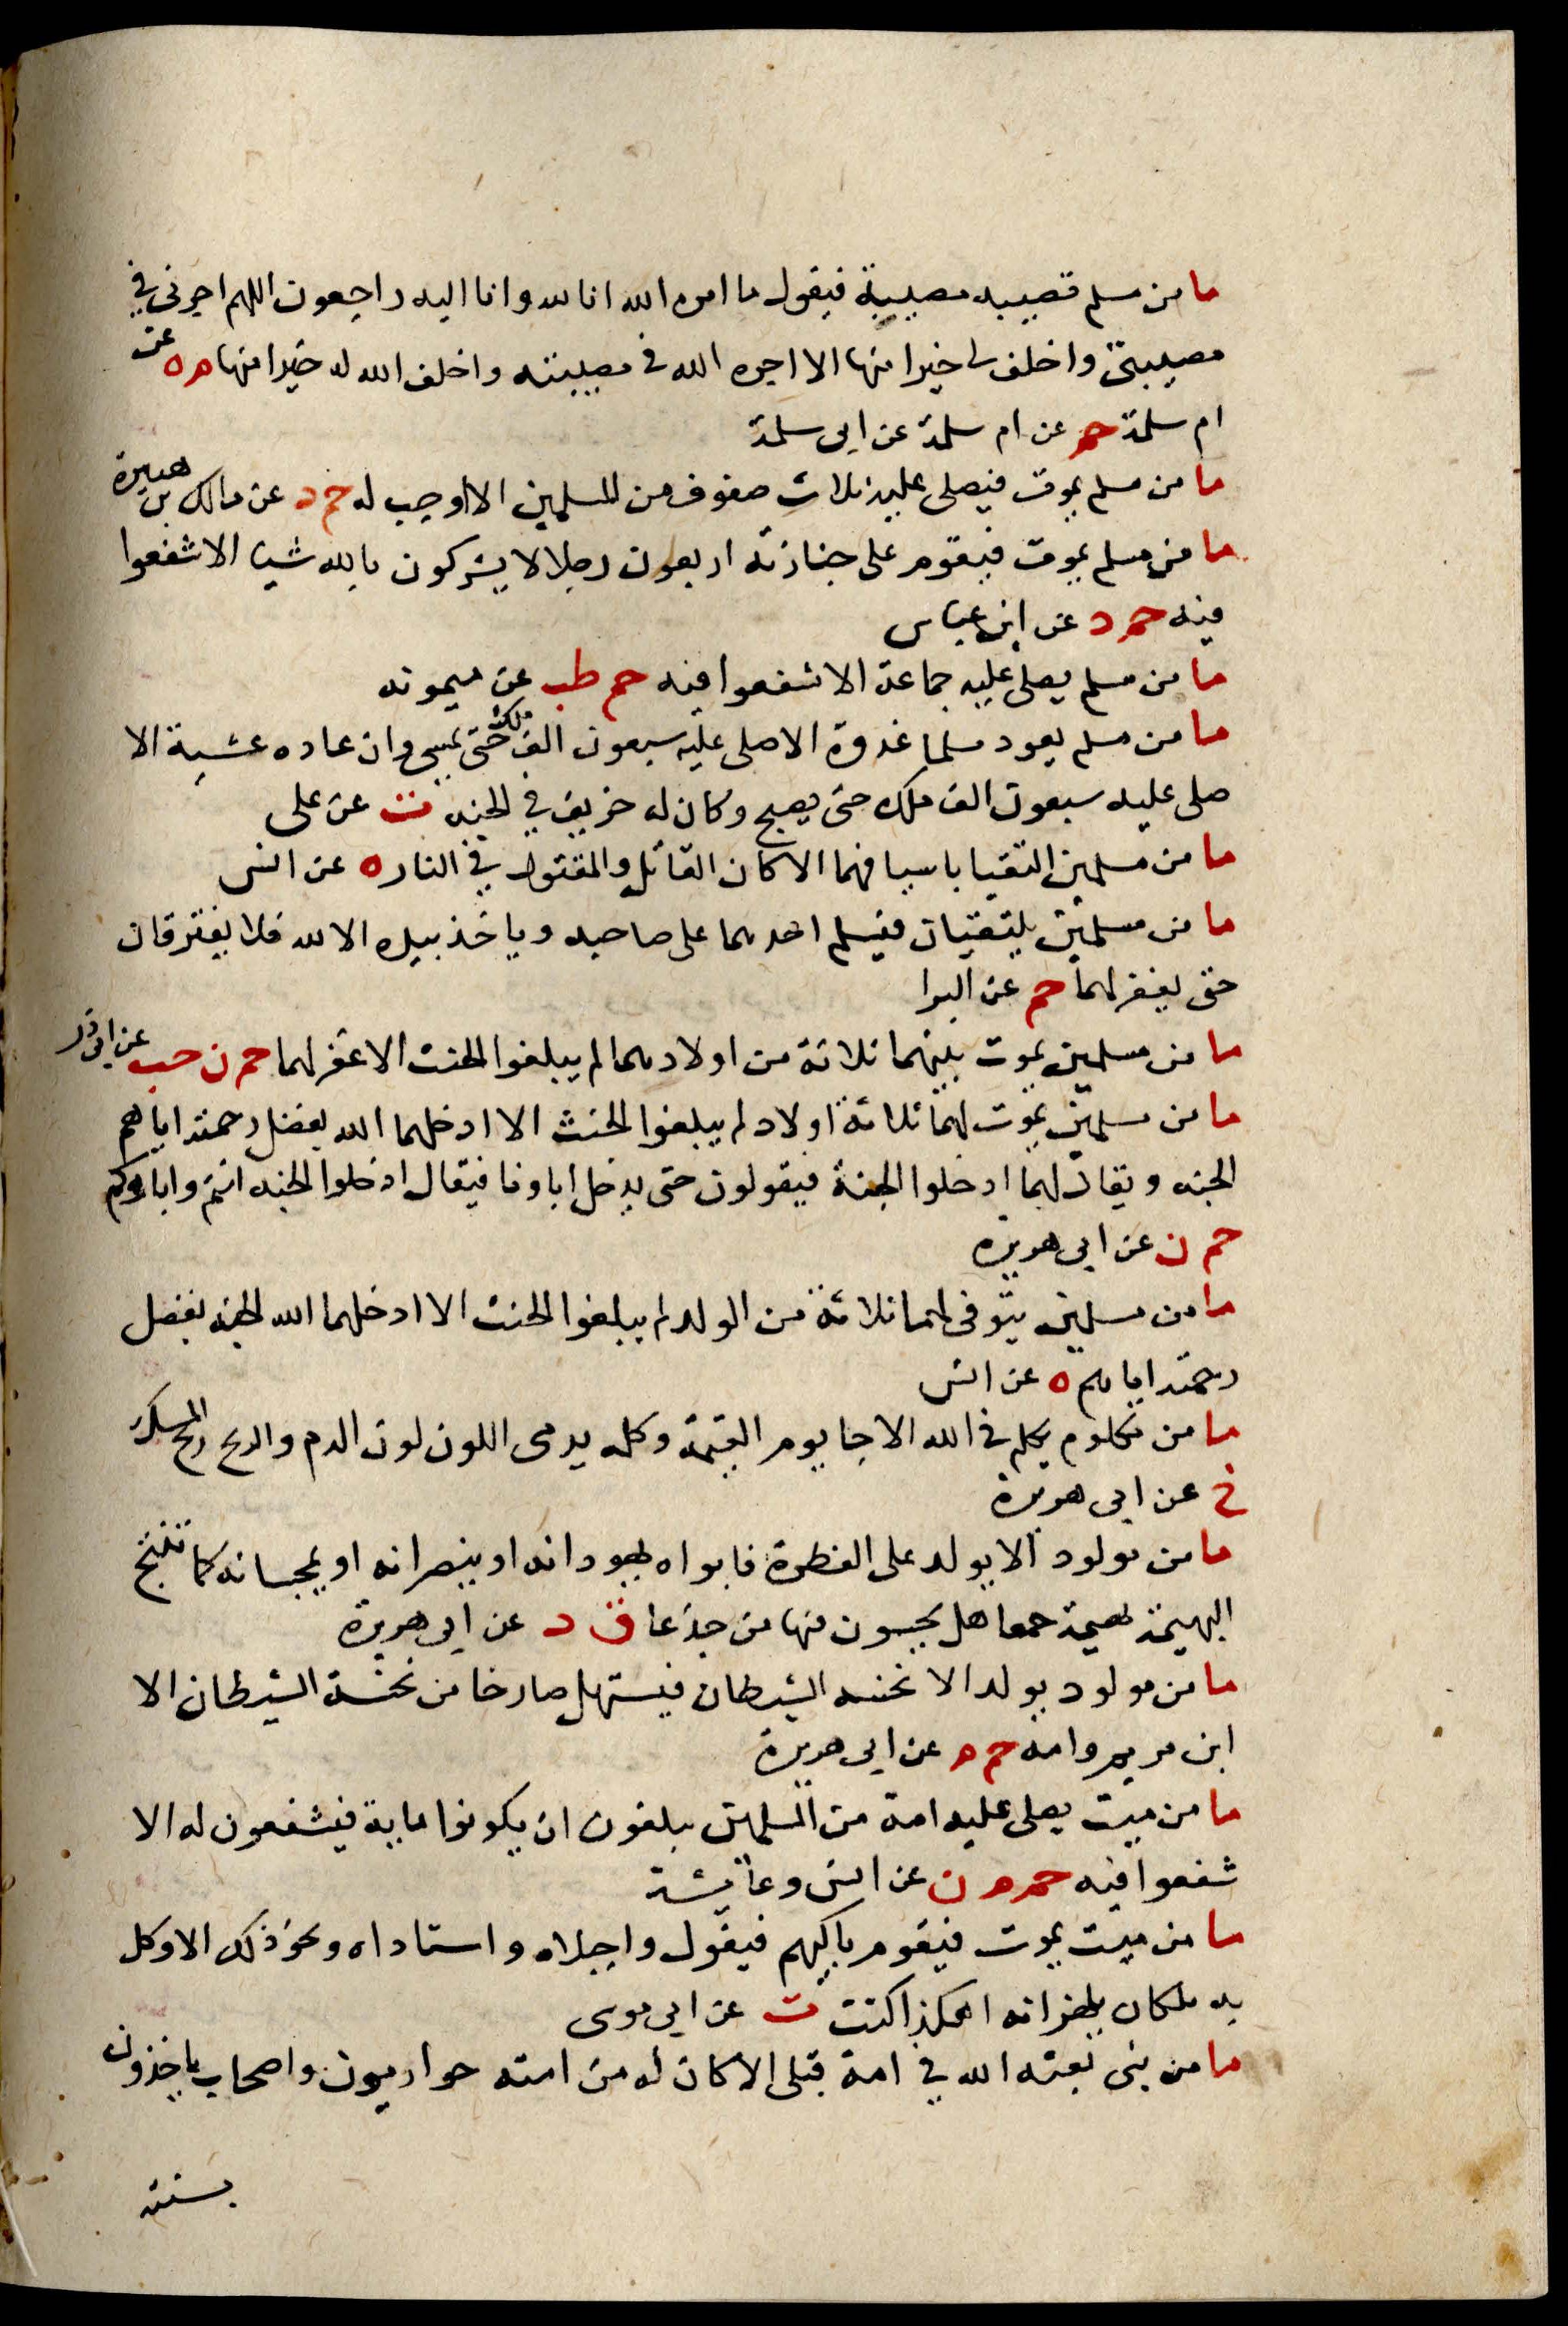 ما من مسلم تصيبه مصيبة فيقول ما امره الله انا لله وانا اليه راجعون اللهم اجرني في
مصيبتي واخلف لي خيرا منها الا اجره الله في مصيبته واخلف الله له خيرا منها م ه عن
ام سلمة حم عن ام سلمة عن ابي سلمة
ما من مسلم يموت فيصلي عليه ثلاث صفوف من المسلمين الا اوجب له حم د عن مالك بن هبيرة
ما من مسلم يموت فيقوم على جنازته اربعون رجلا لا يشركون بالله شيا الا شفعوا
فيه حم د عن ابن عباس
ما من مسلم يصلي عليه جماعة الا شفعوا فيه حم طب عن ميمونه
ما من مسلم يعود مسلما غدوة الا صلى عليه سبعون الف ملك حتى يمسي وان عاده عشية الا
صلى عليه سبعون الف ملك حتى يصبح وكان له خريف في الجنه ت عن على
ما من مسلمين التقيا باسيافهما الا كان القاتل والمقتول في النار ه عن انس
ما من مسلمين يلتقيان فيسلم احدهما على صاحبه وياخذ بيده الا لله فلا يفترقان
حتى يغفر لهما حم عن البرا
ما من مسلمين يموت بينهما ثلاثة من اولادهما لم يبلغوا الحنث الا غفر لهما حم ن حب عن ابي ذر
ما من مسلمين يموت لهما ثلاثة اولاد لم يبلغوا الحنث الا ادخلهما الله بفضل رحمته اياهم
الجنه ويقال لهما ادخلوا الجنة فيقولون حتى يدخل اباونا فيقال ادخلوا الجنه انتم واباوكم
حم ن عن ابي هريرة
ما من مسلمين يتوفى لهما ثلاثة من الولد لم يبلغوا الحنث الا ادخلهما الله الجنه بفضل
رحمته اياهم ه عن انس
ما من مكلوم يكلم في الله الا جا يوم القيمة وكلمه يدمى اللون لون الدم والريح ريح المسك
خ عن ابي هريرة
ما من مولود الا يولد على الفطرة فابواه يهودانه او ينصرانه او يمجسانه كما تنتج
البهيمة بهيمة جمعا هل تحسون فيها من جدعا ق د عن ابي هريرة
ما من مولود يولد الا نخسه الشيطان فيستهل صارخا من نخسة الشيطان الا
ابن مريم وامه حم م عن ابي هريرة
ما من ميت يصلي عليه امة من المسلمين يبلغون ان يكونوا ماية فيشفعون له الا
شفعوا فيه حم م ن عن انس وعايشة
ما من ميت يموت فيقوم باكيهم فيقول واجبلاه واستاداه ونحو ذلك الا وكل
به ملكان يلهزانه اهكذا كنت ت عن ابي موسى
ما من نبي بعثه الله في امة قبلي الا كان له من امته حواريون واصحاب ياخذون
بسنته